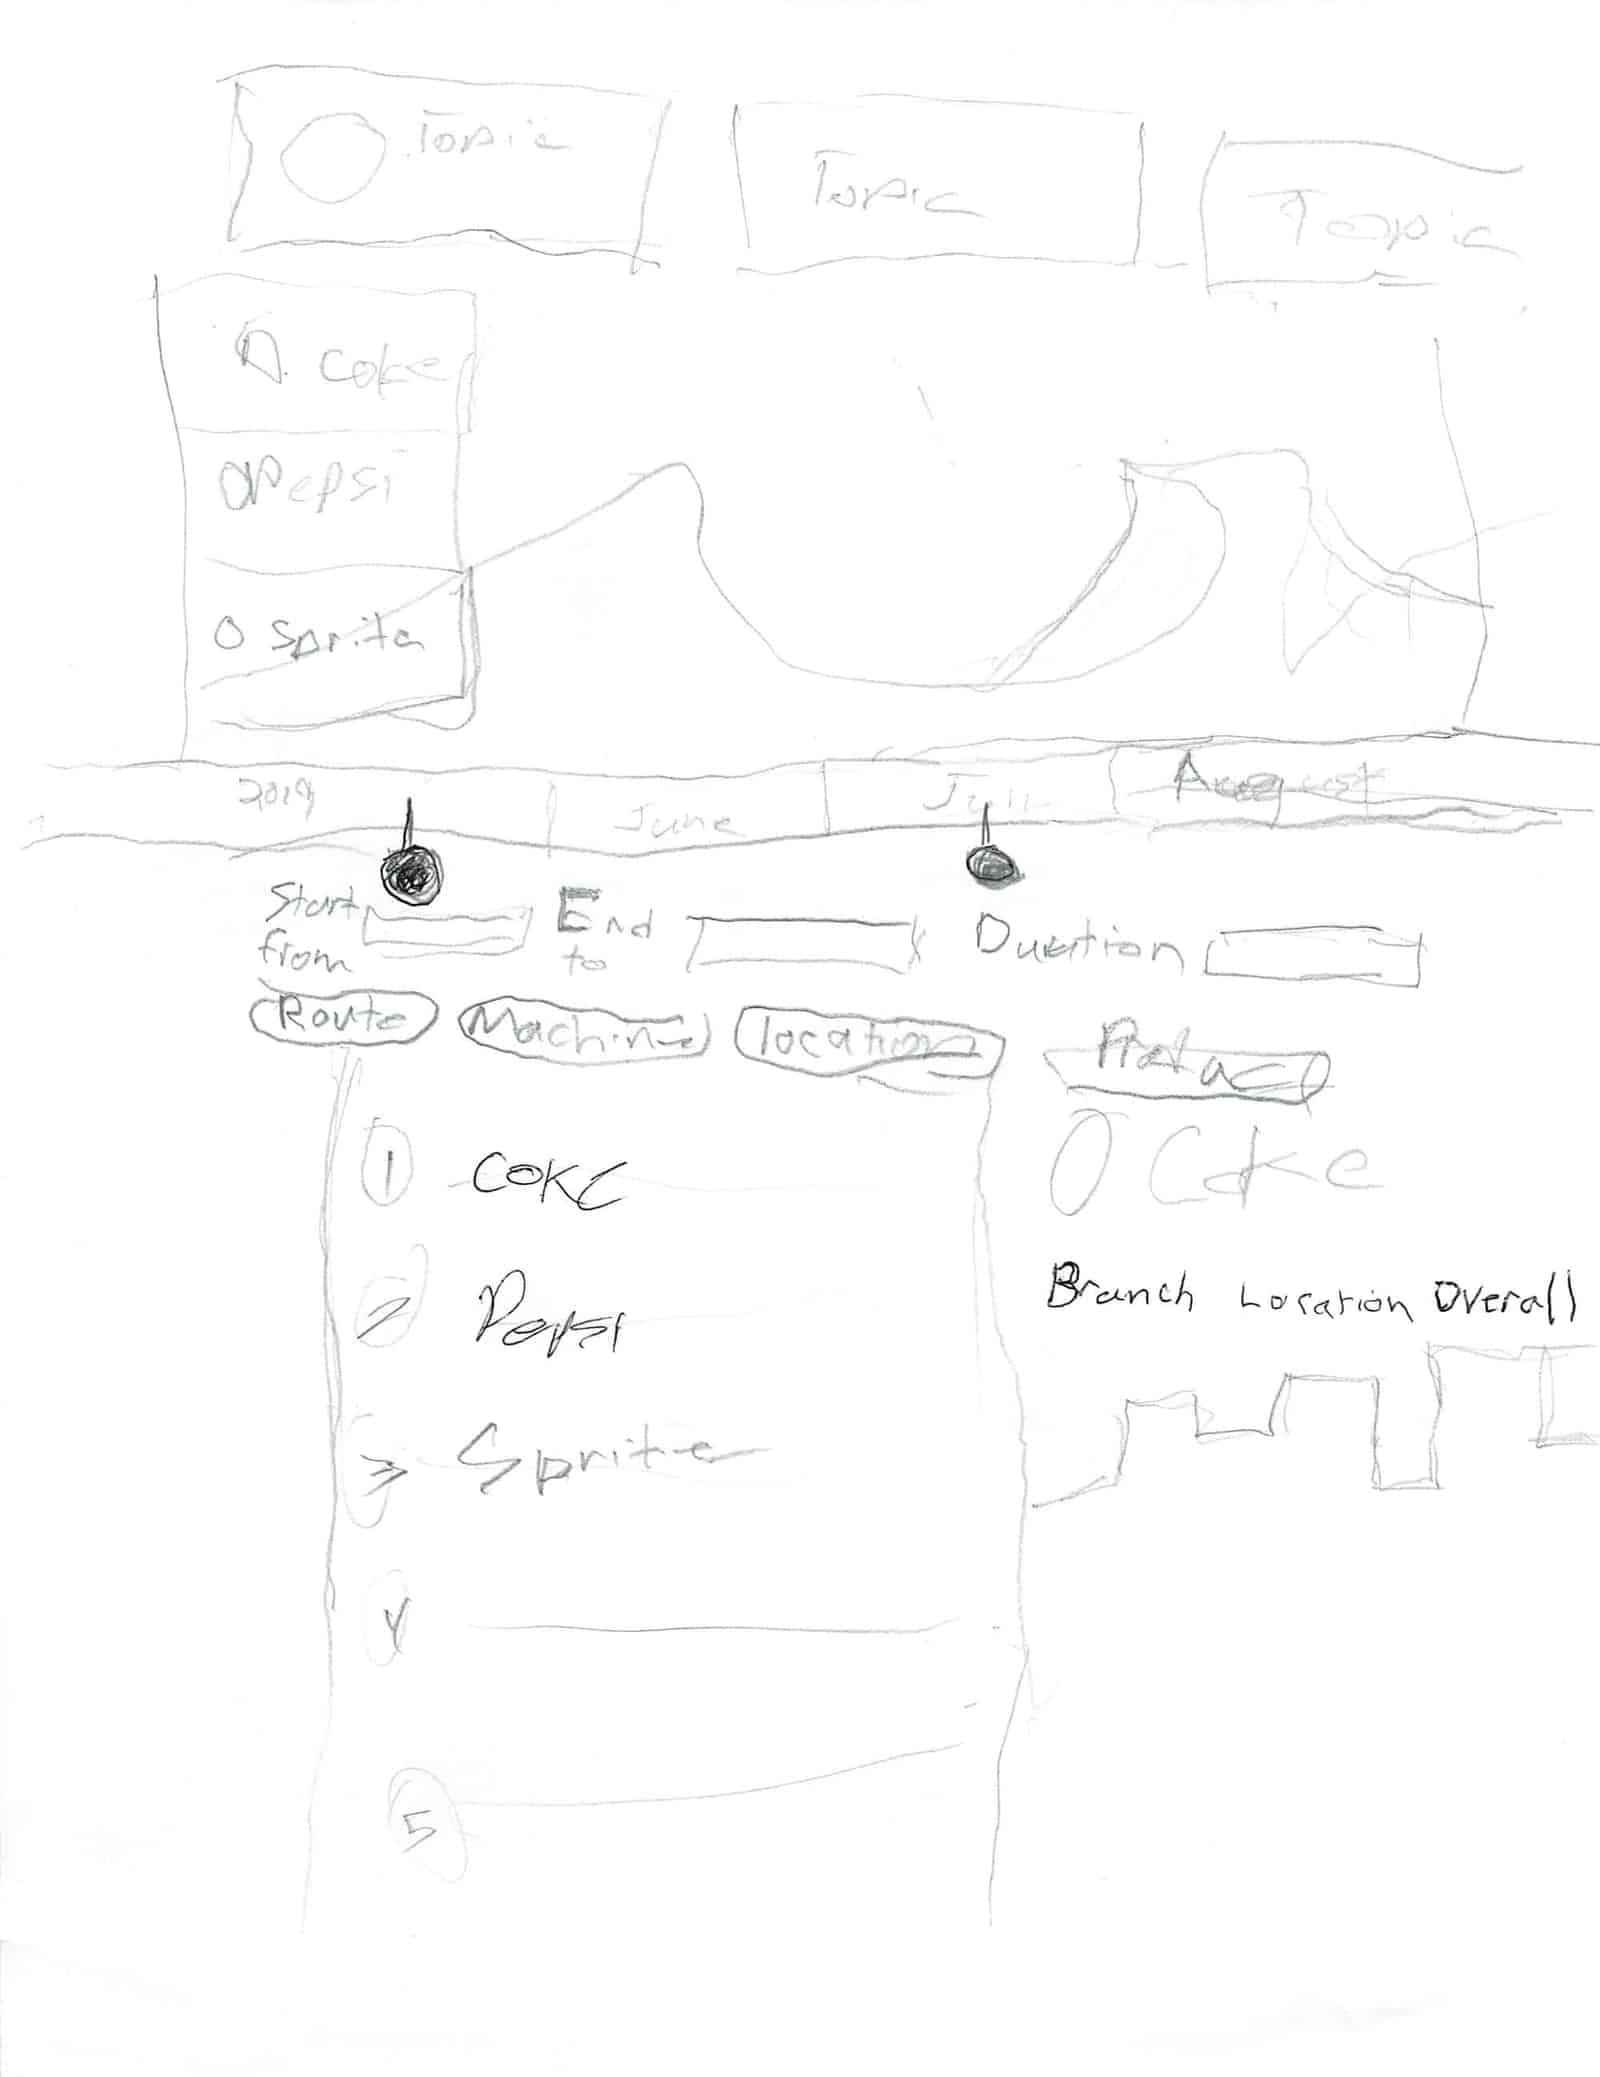 Topic
Topic
Topic
Coke
Pepsi
Sprite
2019 June July August
Start from
End to
Duration
Route Machine location
1 COKE
2 Pepsi
3 Sprite
4
5
Coke
Branch Location Overall